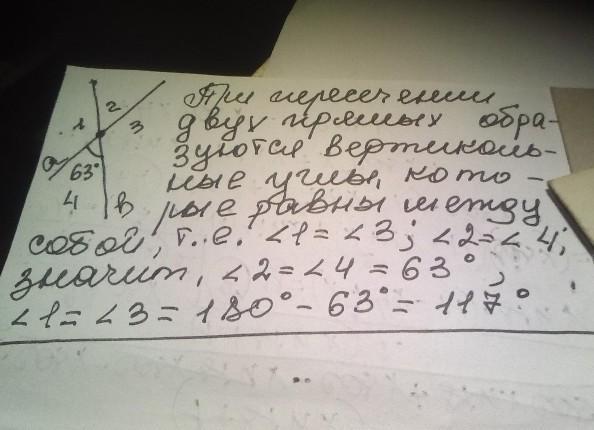 1 2 3
а 63°
4 в
При пересечении
двух прямых обра-
зуются вертикаль-
ные углы, кото-
рые равны между
собой, т.е. ∠1=∠3; ∠2=∠4;
значит, ∠2=∠4=63°;
∠1=∠3=180°-63°=117°